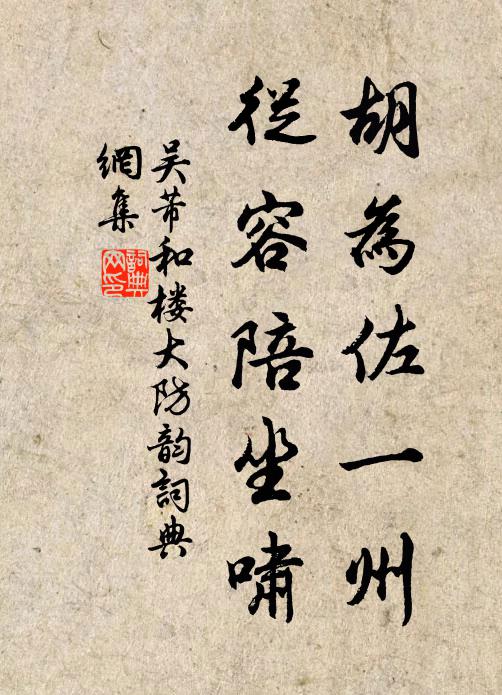 胡為佐一州
從容陪坐嘯
吴芾和楼大防韵詞典
網集
詞典
网印